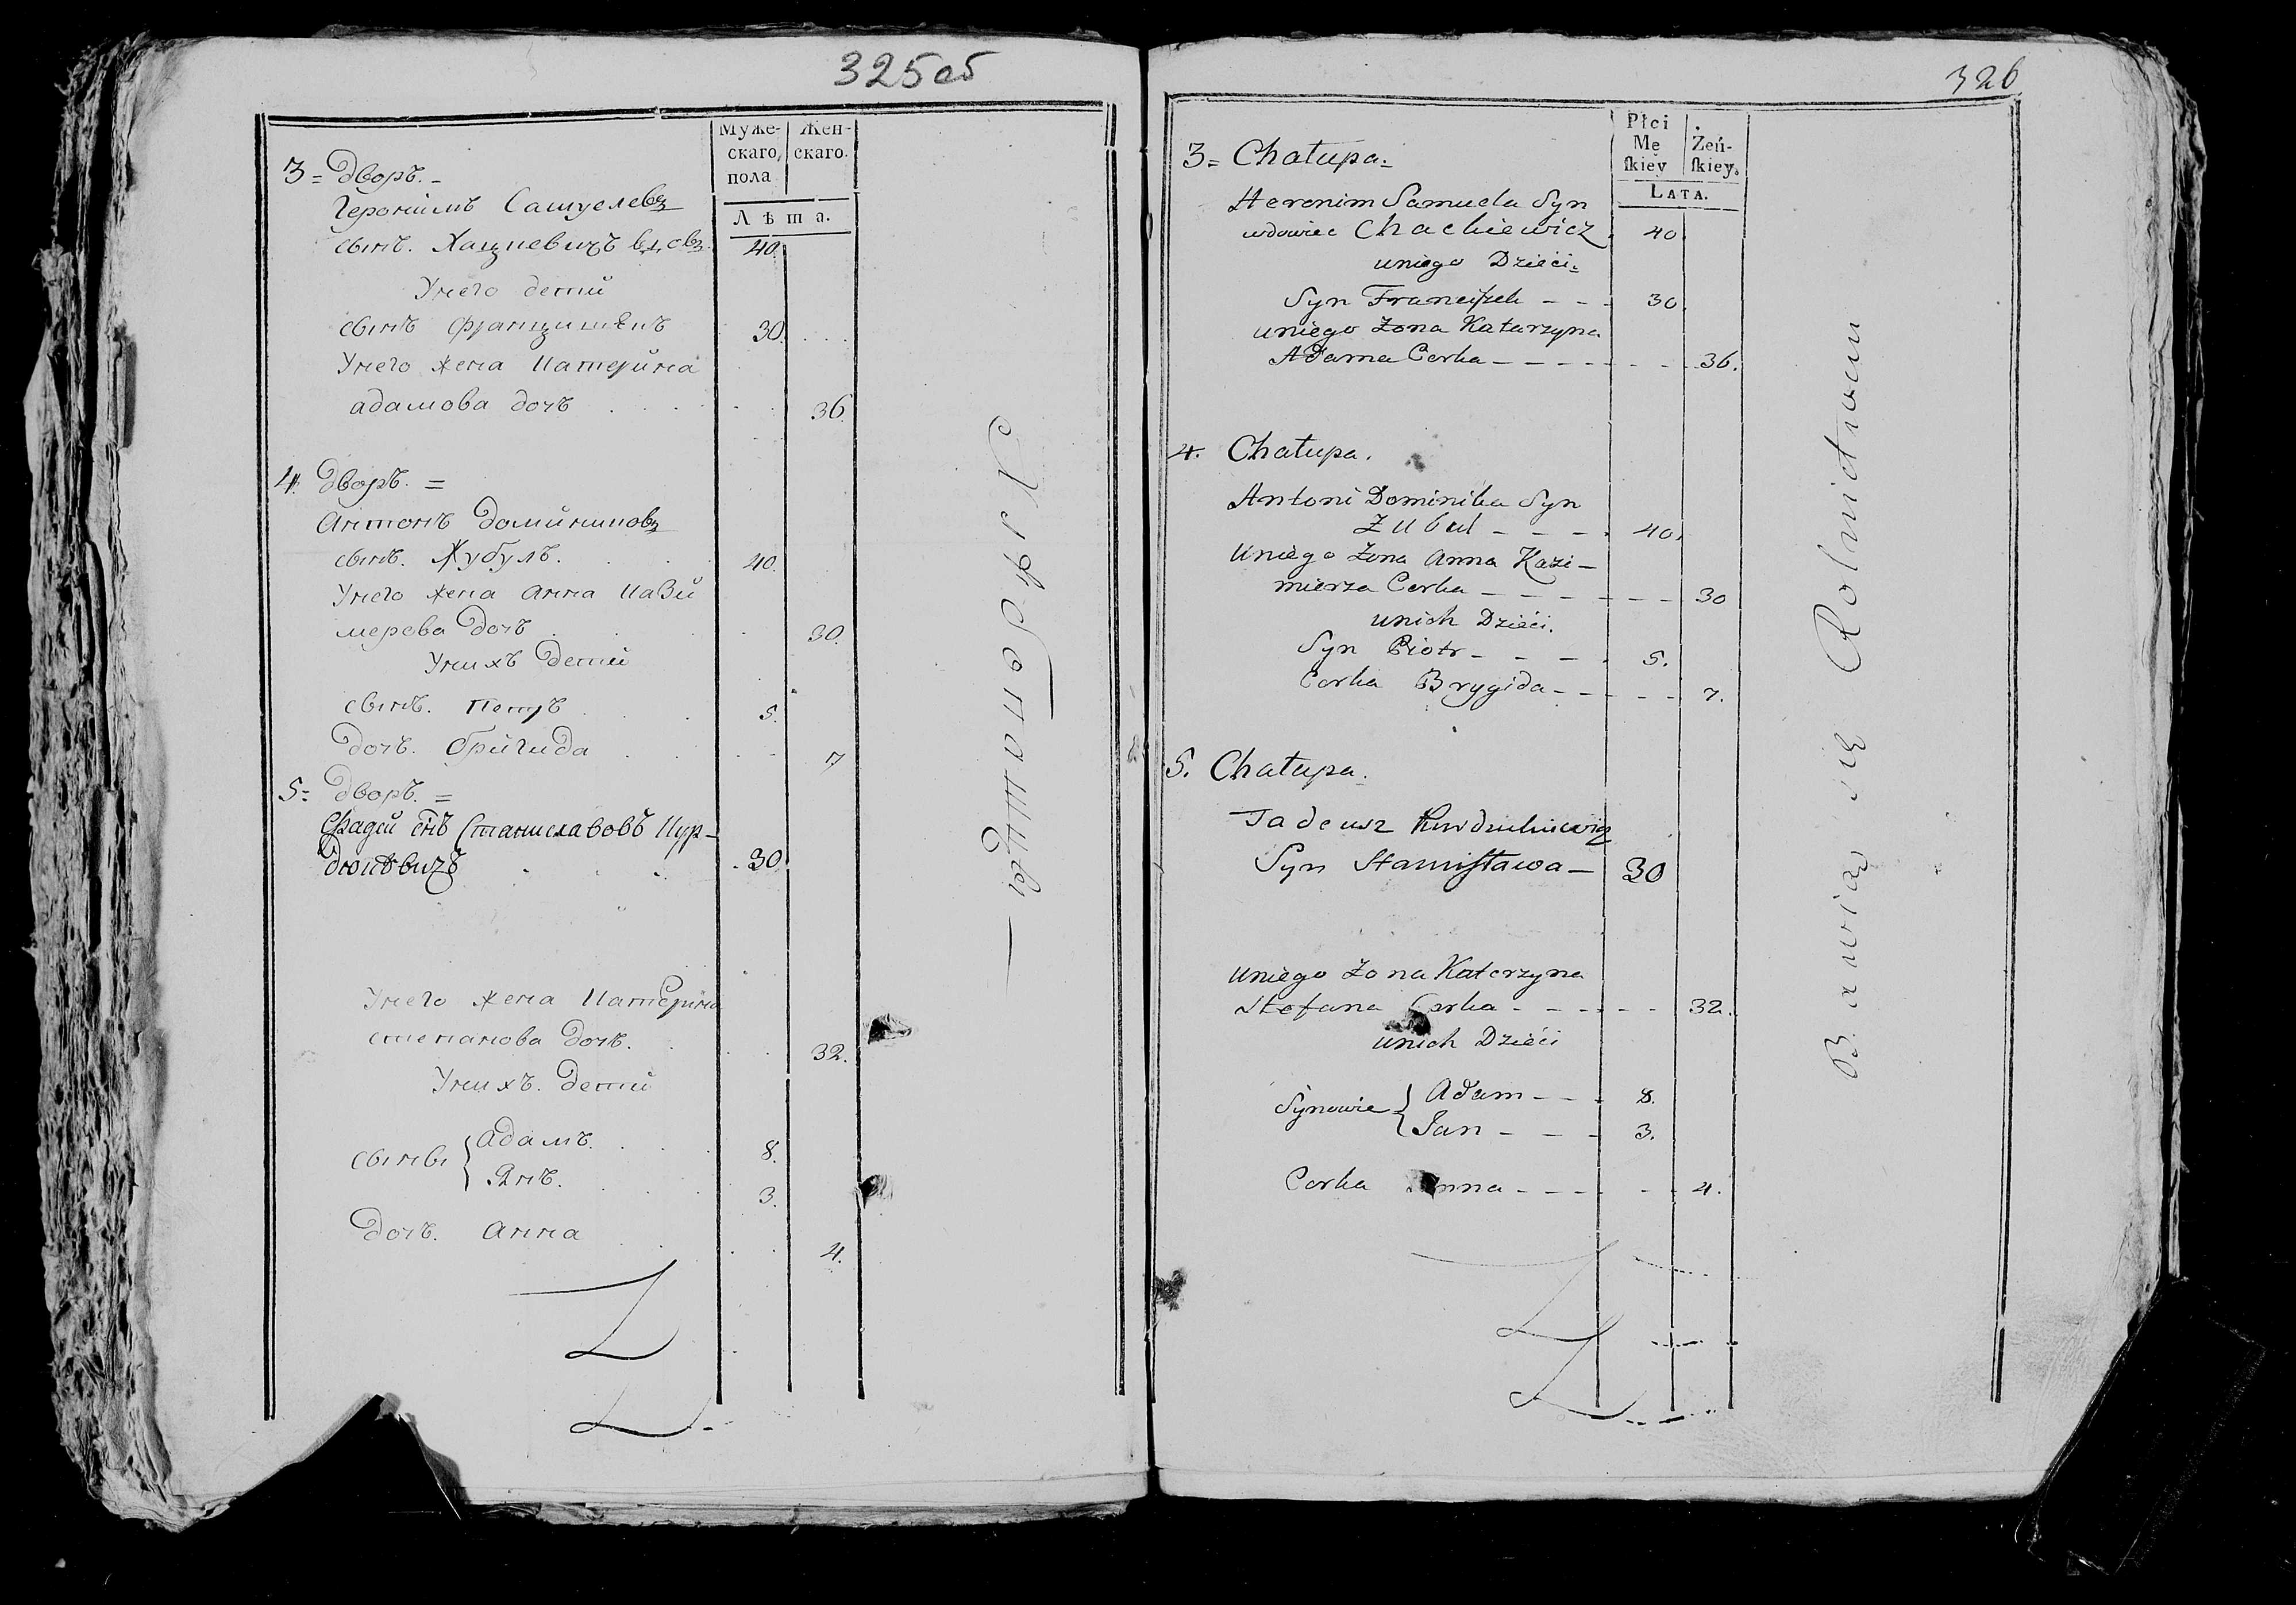 325об
Муже-
скаго,
пола
Жен-
скаго.
Лѣта.
3= Дворъ.-
Геронимъ Самуелевъ
сынъ. Хацкевичъ вдовъ. 40.
Унего дети
сынъ Францишекъ 30.
Унего жена Катерина
адамова дочь 36.
4. Дворъ. =
Антонъ Доминиковъ
сынъ. Жубулъ. 40.
Унего жена Анна Кази
мерова Дочь 30.
Унихъ Дети
сынъ. Петръ 5.
Дочь. Бригида 7
5= Дворъ. =
Фадей сынъ Станиславовъ Кур-
дюкевичъ 30.
Унего жена Катерина
степанова дочь. 32.
Унихъ. Дети
сыны { Адамъ. 8.
Янъ. 3.
Дочь. Анна 4.
326
Płci
Mę
ſkiey
Żeń-
ſkiey.
LATA.
3= Chałupa.-
Heronim Samuela Syn
wdowiec Chackiewicz 40
uniego Dzieci.
Syn Franciſzek - - - 30
uniego Żona Katarzyna
Adama Corka - - - - - - 36.
4. Chałupa.
Antoni Dominika Syn
Zubul - - - - 40.
Uniego Żona Anna Kazi-
mierza Corka - - - - - - 30
unich Dzieci.
Syn Piotr - - - - 5.
Corka Brygida - - - - - 7.
5. Chałupa.
Tadeusz Kurdziukiewicz
Syn Staniſława - 30
uniego Żona Katerzyna
Stefana Corka - - - - - 32.
unich Dzieci
Synowie { Adam - - - 8.
Jan - - - 3.
Corka Anna - - - - - 4.
Bawią się Rolnictwem